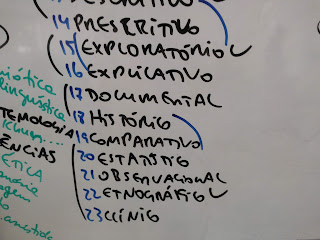 14 PRESCRITIVO
15 EXPLORATÓRIO
16 EXPLICATIVO
17 DOCUMENTAL
18 HISTÓRICO
19 COMPARATIVO
20 ESTATÍSTICO
21 OBSERVACIONAL
22 ETNOGRÁFICO
23 CLÍNICO
linguística
TEMOLOGIA
ÊNCIAS
ÉTICA